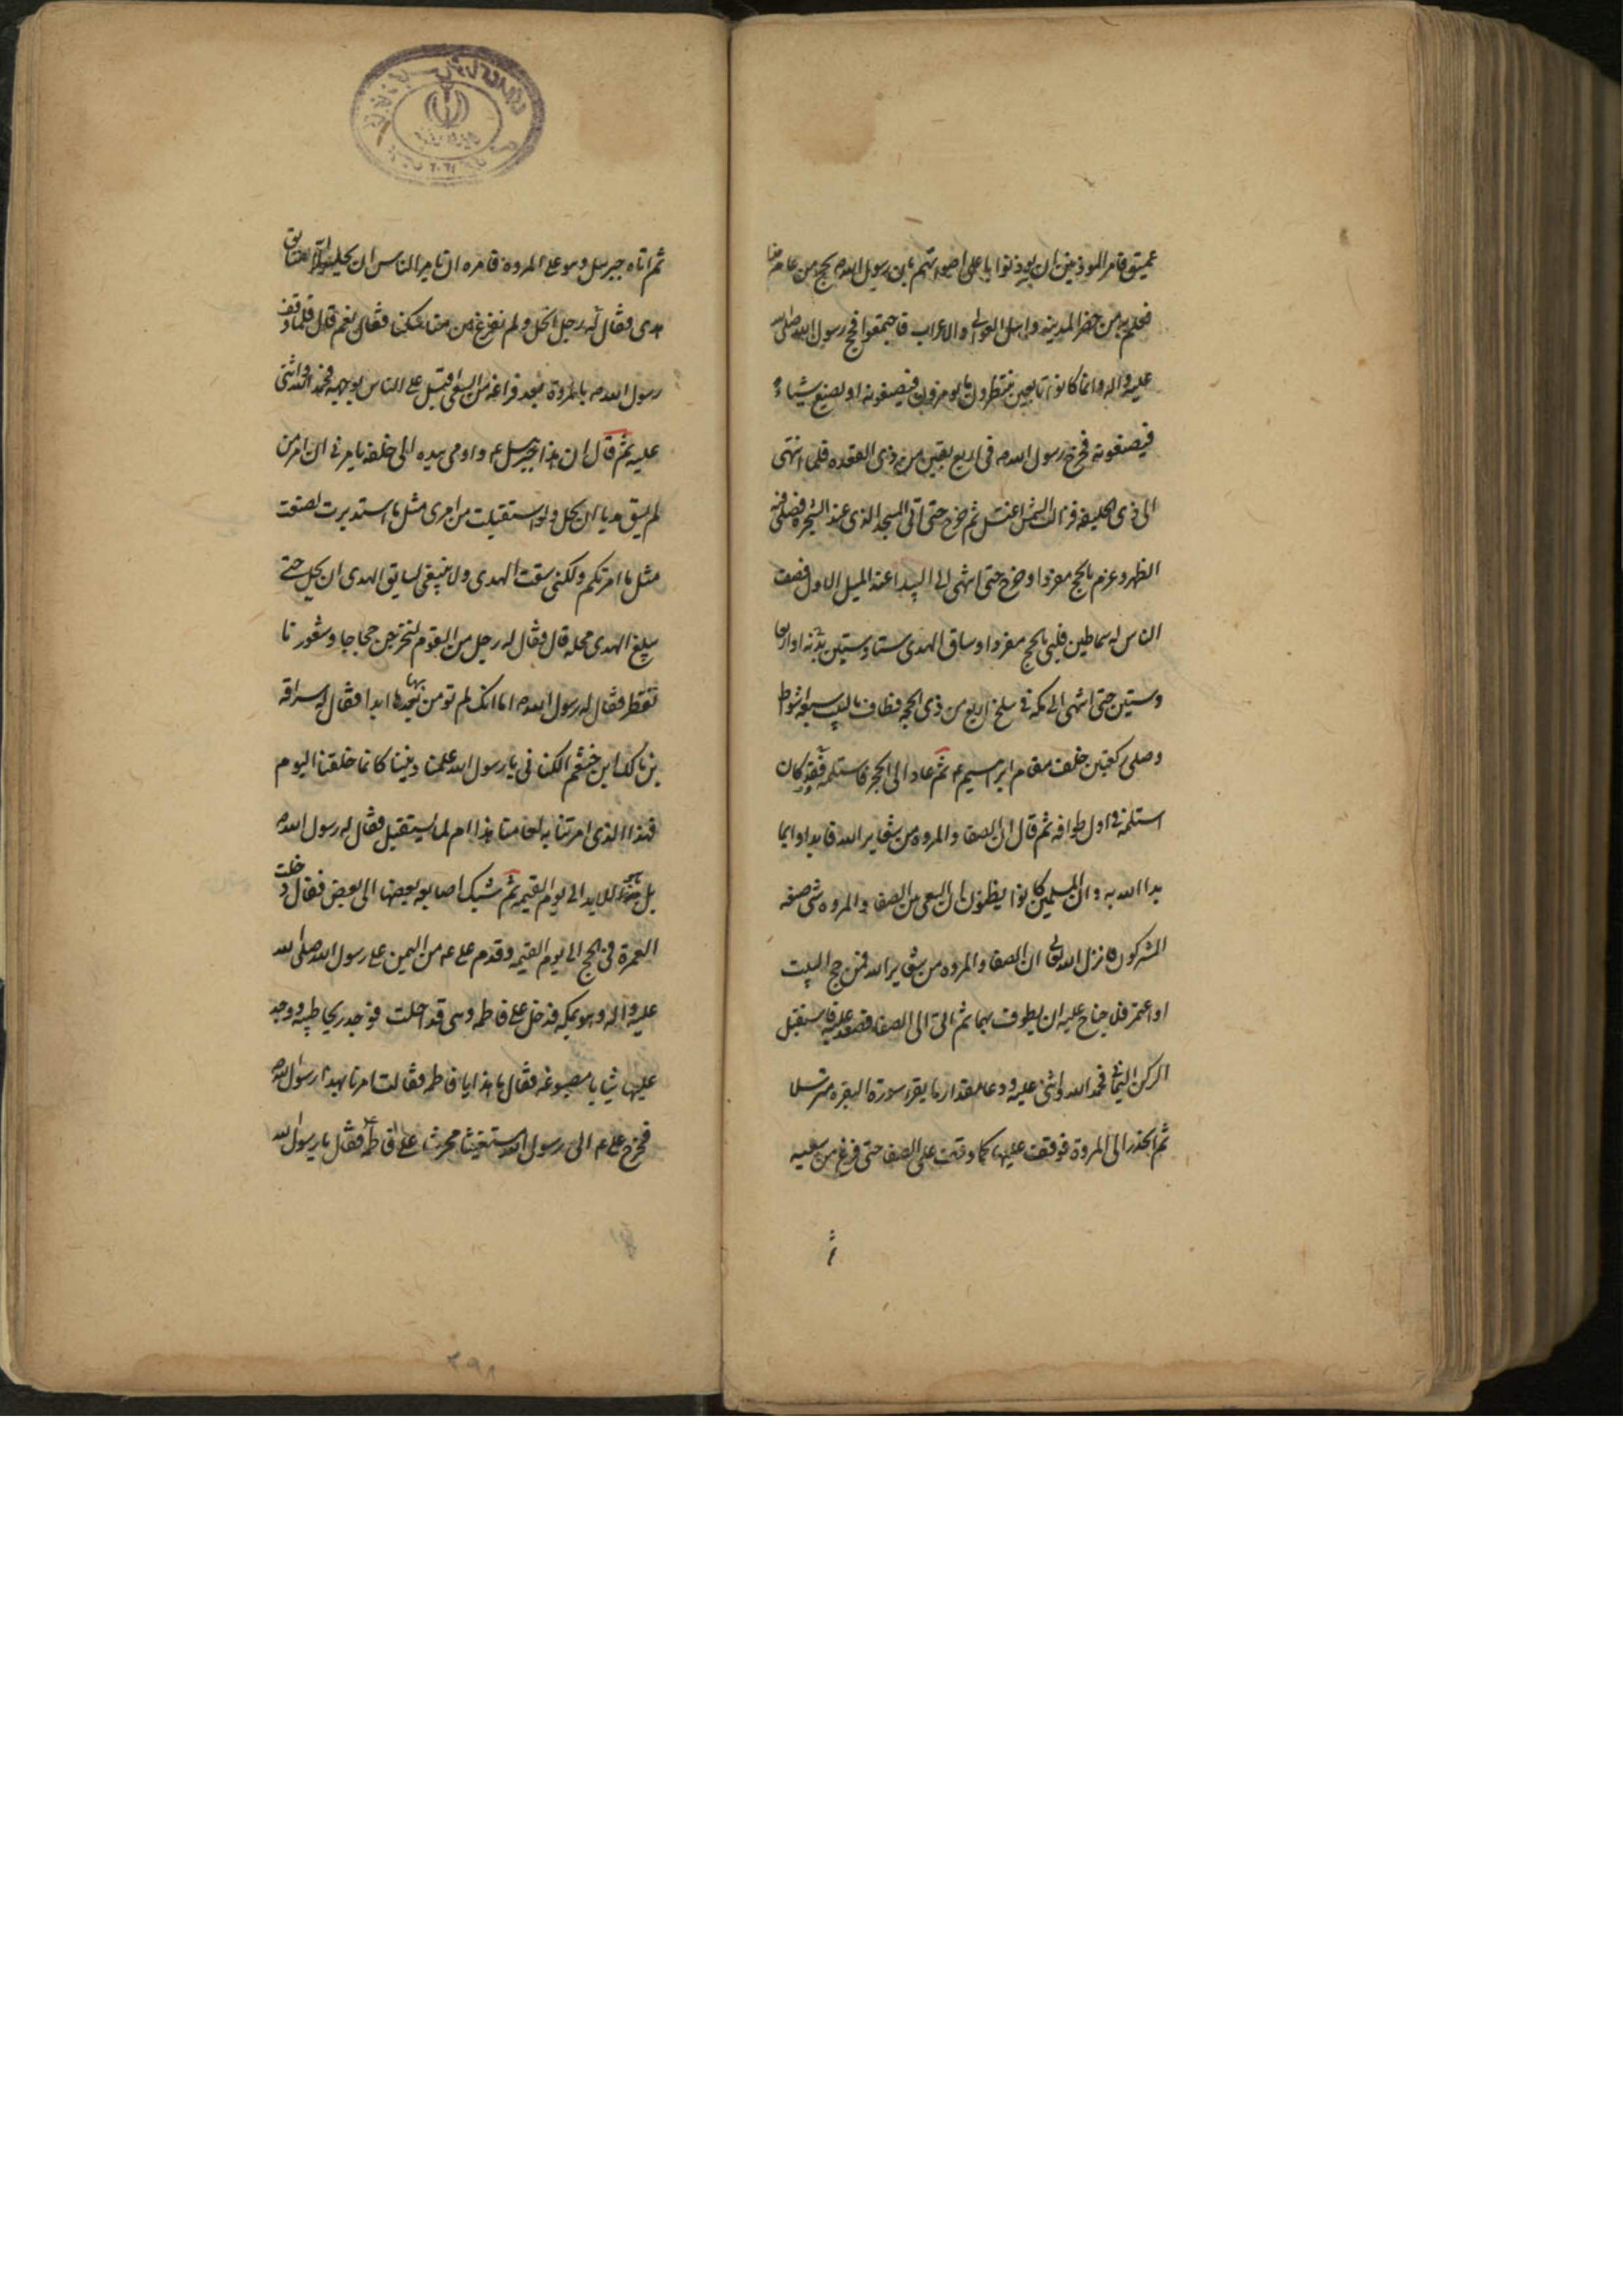 عميق فامر الموذنين ان يوذنوا باعلى اصواتهم بان رسول الله ص يحج من عامه هذا
فعلم به من حضر المدينه واهل العوالى والاعراب فاجتمعوا فحج رسول الله صلى الله
عليه واله وانما كانوا تابعين ينتظرون ما يومرون فيصنعونه او يصنع شيئاء
فيصنعونه فخرج رسول الله ص فى اربع بقين من ذى القعده فلما انتهى
الى ذى الحليفه فزالت الشمس اغتسل ثم خرج حتى اتى المسجد الذى عند الشجره فصلى فيه
الظهر وعزم بالحج مفردا وخرج حتى انتهى الى البيدا عند الميل الاول فصف
الناس له سماطين فلبى بالحج مفردا وساق الهدى ستا وستين بدنه او اربعا
وستين حتى انتهى الى مكه فى سلخ اربع من ذى الحجه فطاف بالبيت سبعه اشواط
وصلى ركعتين خلف مقام ابرهيم ع ثم عاد الى الحجر فاستلمه وقد كان
استلمه فى اول طوافه ثم قال ان الصفا والمروه من شعاير الله فابداوا بما
بدا الله به وان المسلمين كانوا يظنون ان السعى من الصفا والمروه شى صنعه
المشركون فانزل الله تعالى ان الصفا والمروه من شعاير الله فمن حج البيت
او اعتمر فلا جناح عليه ان يطوف بهما ثم اتى الى الصفا فصعد عليه فاستقبل
الركن اليمانى فحمد الله واثنى عليه ودعا مقدار ما يقرء سورة البقره مترسلا
ثم انحدر الى المروة فوقف عليها كما وقف على الصفا حتى فرغ من سعيه
ثم
ثم اتاه جبرئيل وهو على المروه فامره ان يامر الناس ان يحلوا الا سايق
هدى فقال له رجل انحل ولم نفرغ من مناسكنا فقال نعم قال فلما وقف
رسول الله ص بالمروة بعد فراغه من السعى اقبل على الناس بوجهه فحمد الله واثنى
عليه ثم قال ان هذا جبرئيل ع واومى بيده الى خلفه يامرنى ان امر من
لم يسق هديا ان يحل ولو استقبلت من امرى مثل ما استدبرت لصنعت
مثل ما امرتكم ولكنى سقت الهدى ولا ينبغى لسايق الهدى ان يحل حتى
يبلغ الهدى محله قال فقال له رجل من القوم لنخرجن حجاجا وشعورنا
تقطر فقال له رسول الله ص اما انك لن تومن بها بعدها ابدا فقال له سراقه
بن مالك بن خثعم الكنانى يا رسول الله علمنا ديننا كانما خلقنا اليوم
فهذا الذى امرتنا به لعامنا هذا ام لما يستقبل فقال له رسول الله ص
بل هو للابد الى يوم القيمه ثم شبك اصابعه بعضها الى بعض فقال دخلت
العمرة فى الحج الى يوم القيمه وقدم على ع من اليمن على رسول الله صلى الله
عليه واله وهو بمكه فدخل على فاطمه وهى قد احلت فوجد ريحا طيبه ووجد
عليها ثيابا مصبوغه فقال ما هذا يا فاطمه فقالت امرنا بهذا رسول الله ص
فخرج على ع الى رسول الله مستفتيا محرشا على فاطمه ع فقال يا رسول الله
٣٩٨